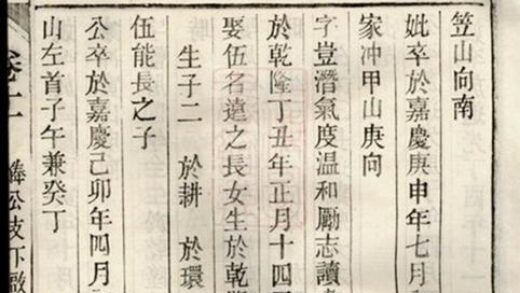 笠山向南
妣卒於嘉慶庚申年七月
家冲甲山庚向
字豈潛氣度温和勵志讀
於乾隆丁丑年正月十四
娶伍名遠之長女生於乾隆
生子二 於耕 於環
伍能長之子
公卒於嘉慶己卯年四月
山左首子午兼癸丁
卷二 公支下